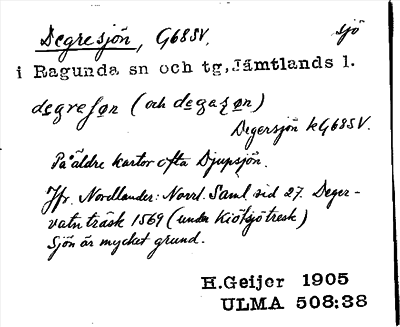 Degresjön, G68SV. sjö
i Ragunda sn och tg, Jämtlands l.
degrešøn (och degašøn)
Degersjön k G68SV.
På äldre kartor ofta Djupsjön.
Jfr. Nordlander: Norrl. Saml. sid 27. Deger-
vatnträsk 1569 (under Kiötsjötresk)
Sjön är mycket grund.
H.Geijer 1905
ULMA 508:38